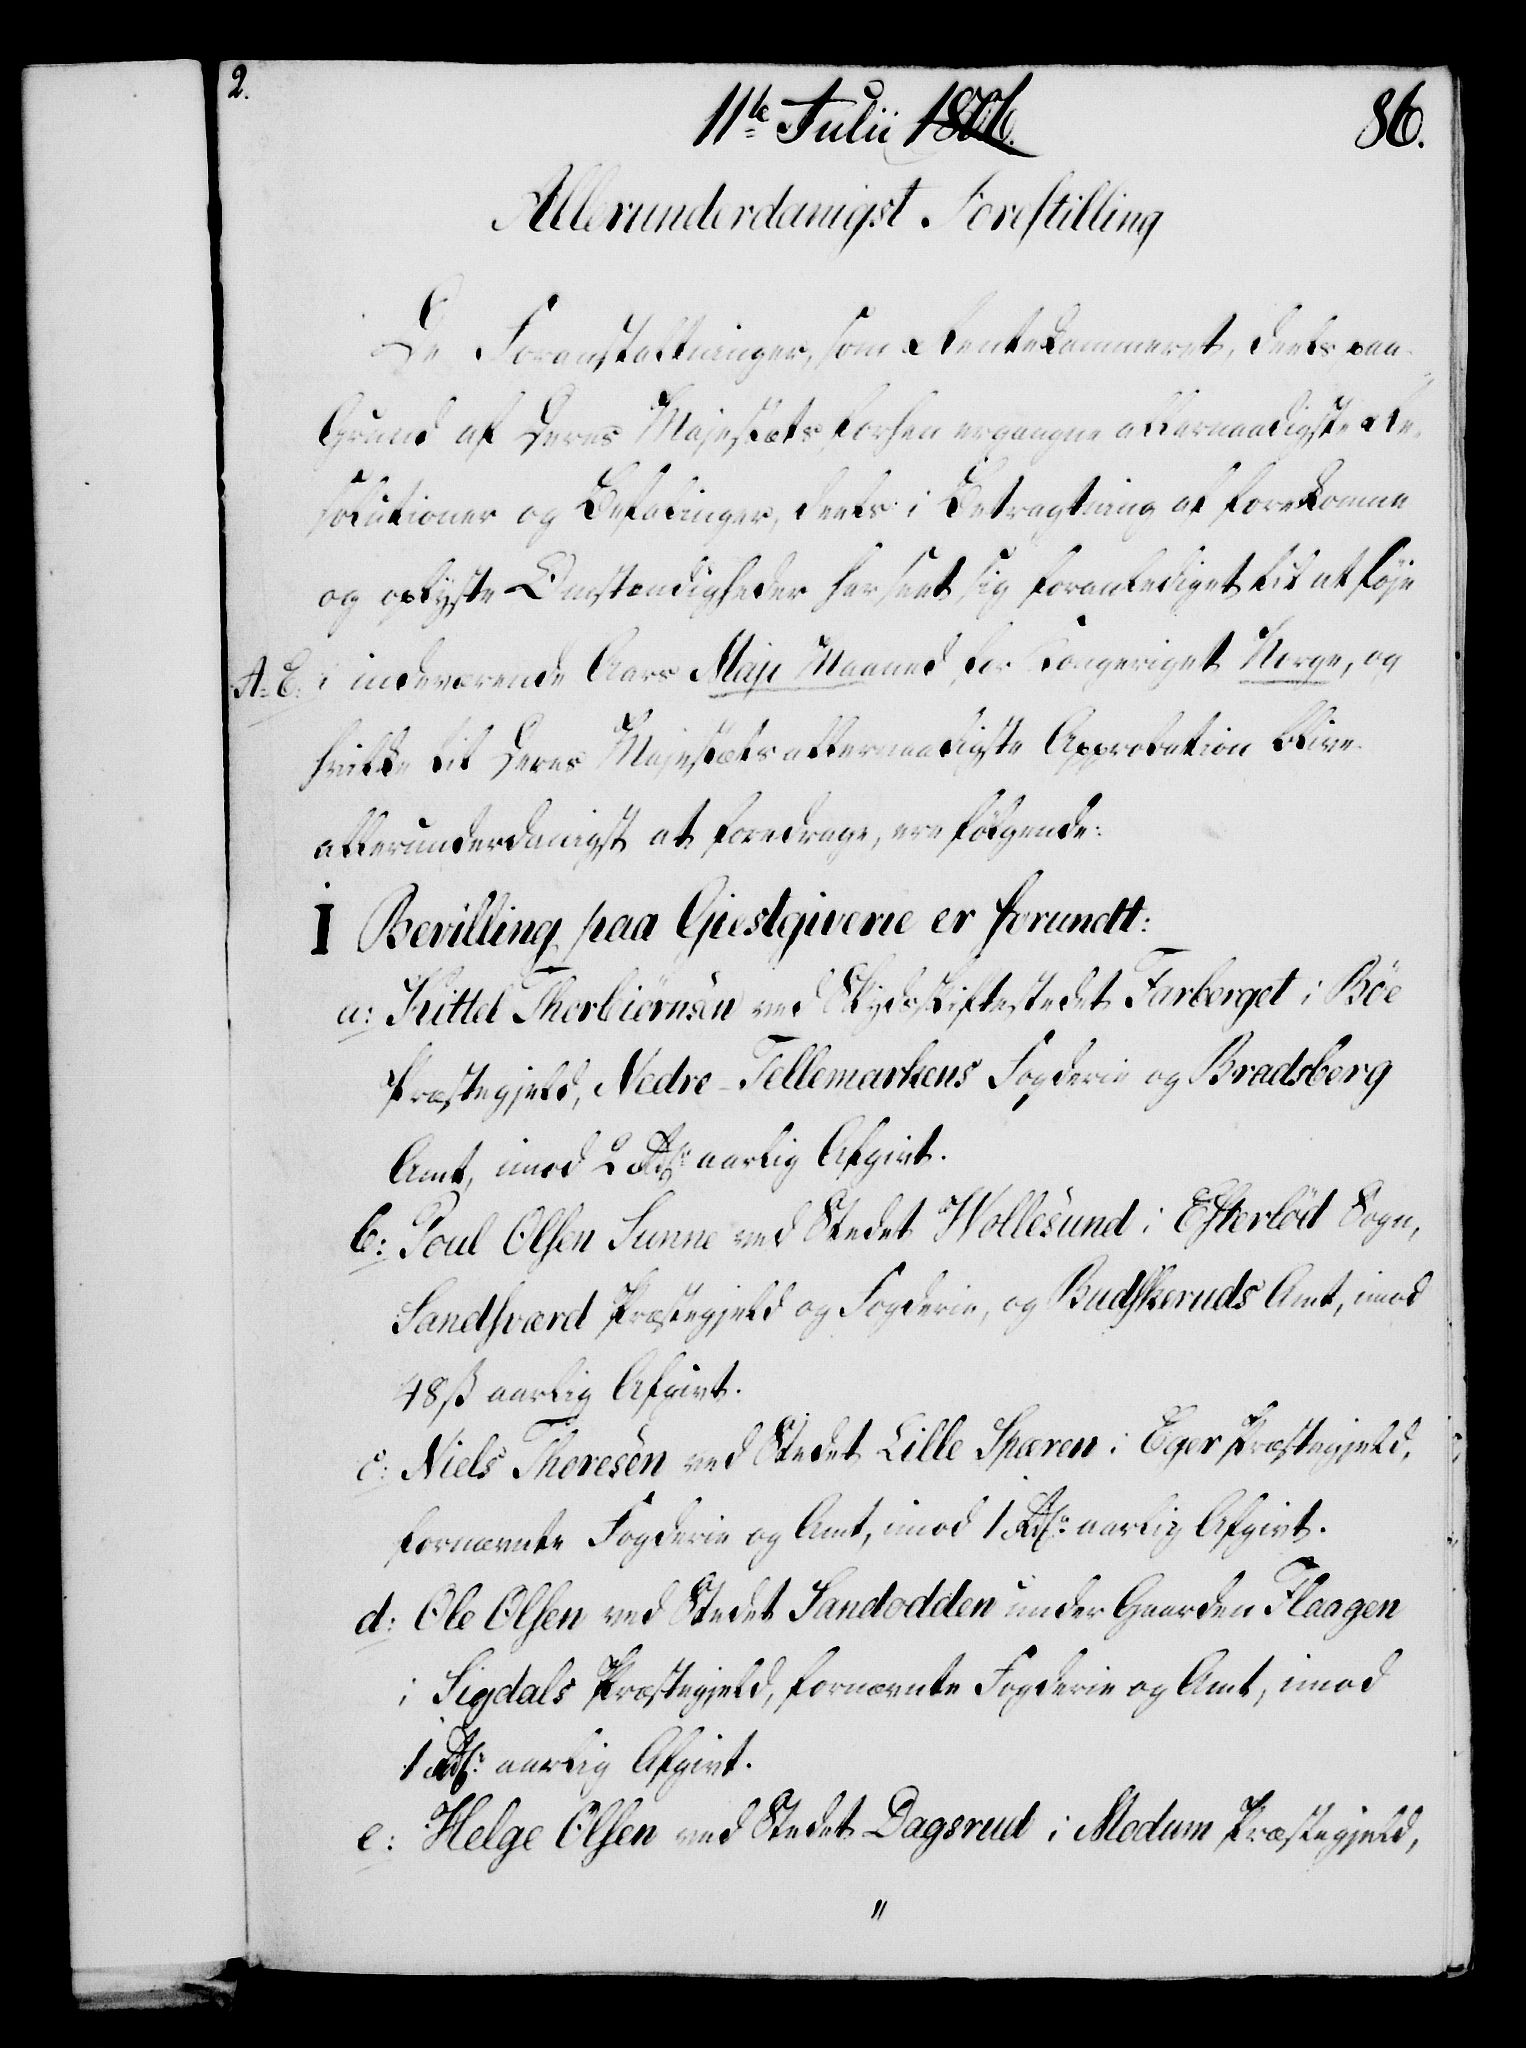 2.
11te Julii 1806.
86.
Allerunderdanigst Forestilling
De Foranstaltninger, som Rentekammeret, deels paa
Grund af Deres Majestæts forhen ergangne allernaadigste Re-
solutioner og Befalinger, deels i Betragtning af forekomne
og oplyste Omstændigheder har seet sig foranlediget til at føje
A: E: i indeværende Aars Maji Maaned for Kongeriget Norge, og
hvilke til Deres Majestæts allernaadigste Approbation blive
allerunderdanigst at foredrage, ere følgende:
I Bevilling paa Giestgiverie er forundt:
a: Kittel Thorbiörnsen ved Skydsskiftestedet Farberget i Böe
Præstegjeld, Nedre-Tellemarkens Fogderie og Bradsberg
Amt, imod 2 Rdr: aarlig Afgivt.
b: Poul Olsen Sunne ved Stedet Wollesund i Efterlöd Sogn,
Sandsværd Præstegjeld og Fogderie, og Budskeruds Amt, imod
48 ß aarlig Afgivt.
c: Niels Thoresen ved Stedet Lille Spæren i Eger Præstegjeld,
fornævnte Fogderie og Amt, imod 1 Rdr: aarlig Afgivt.
d: Ole Olsen ved Stedet Sandodden under Gaarden Flaagen
i Sigdals Præstegjeld, fornævnte Fogderie og Amt, imod
1 Rdr: aarlig Afgivt.
e: Helge Olsen ved Stedet Dagsrud i Modum Præstegjeld,
"